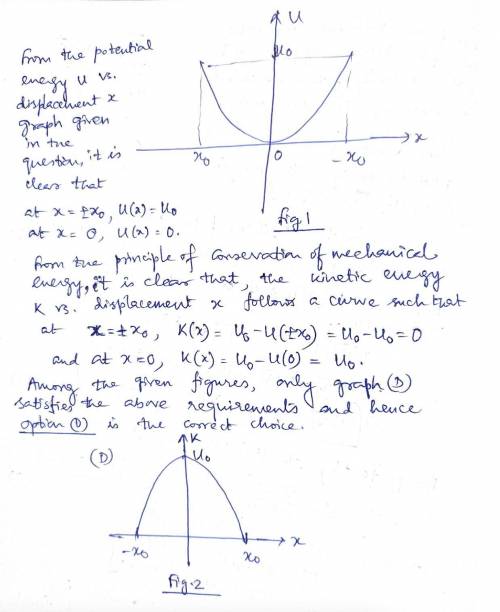 From the potential
energy U vs.
displacement x
graph given
in the
question, it is
clear that
at x = ±x₀, U(x) = U₀
at x = 0, U(x) = 0.
U
U₀
x₀
0
-x₀
x
fig 1
From the principle of conservation of mechanical
energy, it is clear that, the kinetic energy
K vs. displacement x follows a curve such that
at x = ±x₀, K(x) = U₀ - U(±x₀) = U₀ - U₀ = 0
and at x = 0, K(x) = U₀ - U(0) = U₀.
Among the given figures, only graph (D)
satisfies the above requirements and hence
option (D) is the correct choice.
(D)
K
U₀
-x₀
x₀
x
Fig. 2